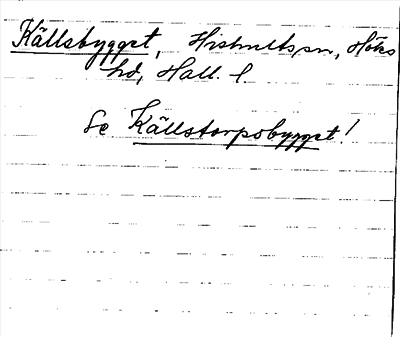 Källsbygget, Hishults sn, Höks
hd, Hall. l.
Se Källstorpsbygget!